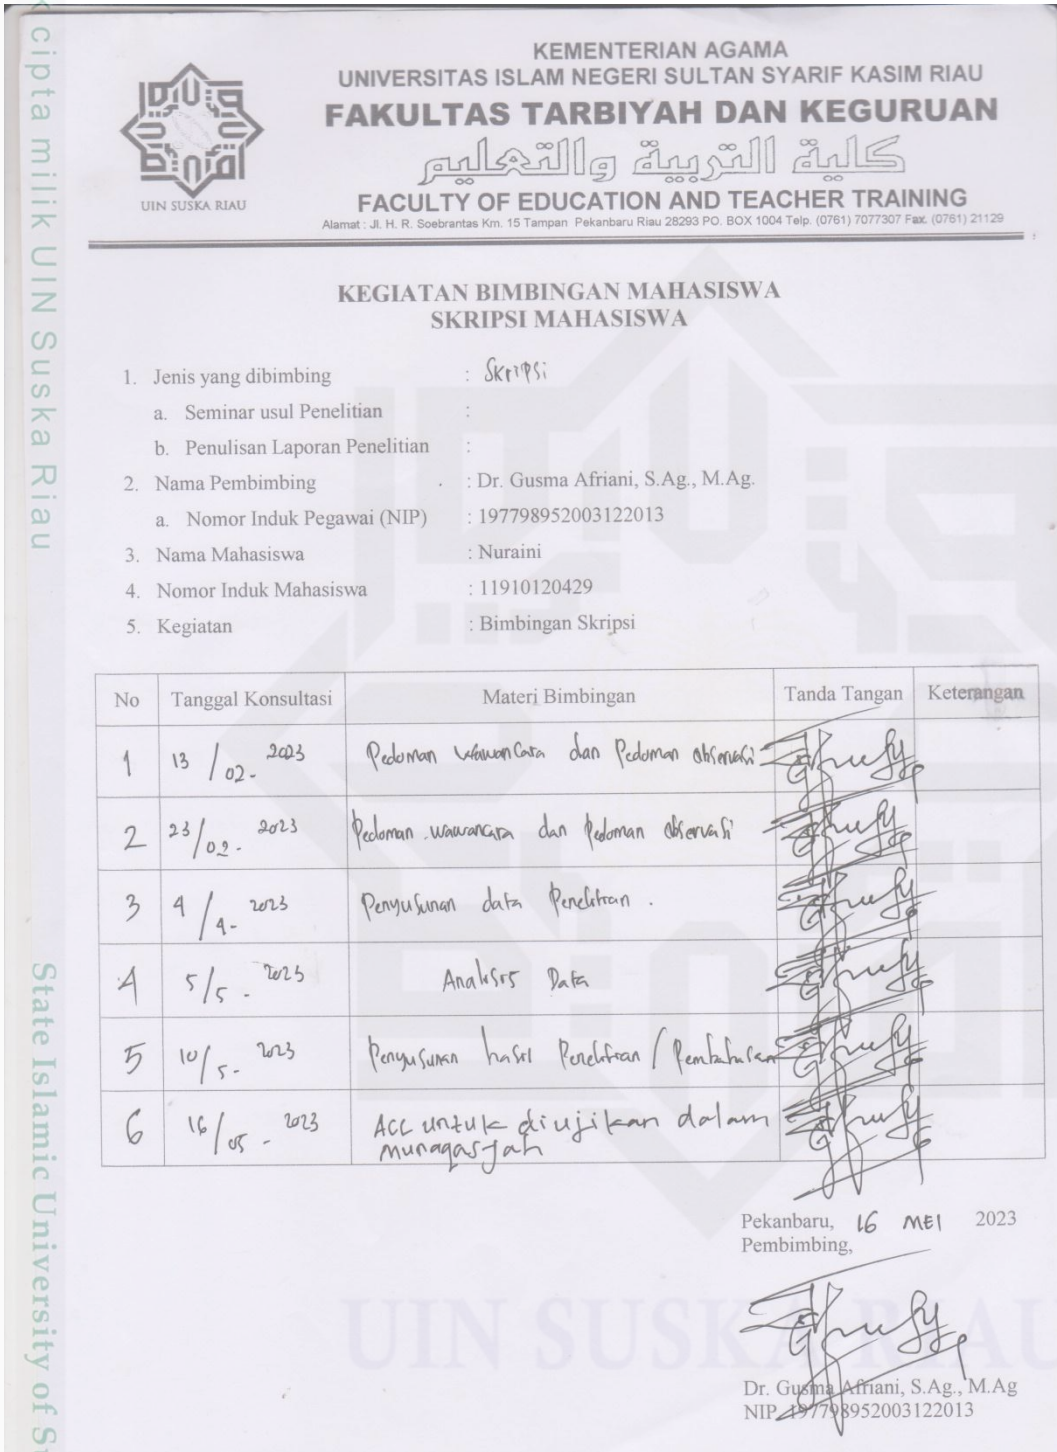 cipta milik UIN Suska Riau
State Islamic University of S
UIN SUSKA RIAU
KEMENTERIAN AGAMA
UNIVERSITAS ISLAM NEGERI SULTAN SYARIF KASIM RIAU
FAKULTAS TARBIYAH DAN KEGURUAN
كلية التربية والتعليم
FACULTY OF EDUCATION AND TEACHER TRAINING
Alamat : Jl. H. R. Soebrantas Km. 15 Tampan Pekanbaru Riau 28293 PO. BOX 1004 Telp. (0761) 7077307 Fax. (0761) 21129
KEGIATAN BIMBINGAN MAHASISWA
SKRIPSI MAHASISWA
1. Jenis yang dibimbing : Skripsi
a. Seminar usul Penelitian :
b. Penulisan Laporan Penelitian :
2. Nama Pembimbing : Dr. Gusma Afriani, S.Ag., M.Ag.
a. Nomor Induk Pegawai (NIP) : 197798952003122013
3. Nama Mahasiswa : Nuraini
4. Nomor Induk Mahasiswa : 11910120429
5. Kegiatan : Bimbingan Skripsi
No Tanggal Konsultasi Materi Bimbingan Tanda Tangan Keterangan
1 13/02- 2023 Pedoman wawancara dan Pedoman observasi
2 23/02- 2023 Pedoman wawancara dan Pedoman observasi
3 4/4- 2023 Penyusunan data Penelitian.
4 5/5- 2023 Analisis Data
5 10/5- 2023 Penyusunan hasil Penelitian / Pembahasan
6 16/05- 2023 Acc untuk diujikan dalam
munaqasyah
Pekanbaru, 16 MEI 2023
Pembimbing,
Dr. Gusma Afriani, S.Ag., M.Ag
NIP. 197798952003122013
UIN SUSKA RIAU